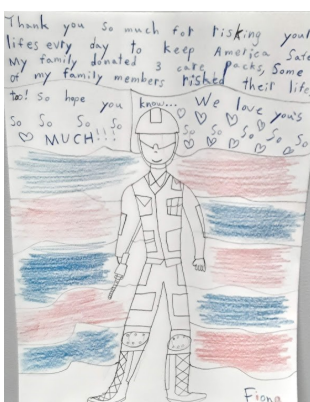 Thank you so much for risking your
lifes evry day to keep America Safe
My family donated 3 care packs, Some
of my family members risked their life
too! So hope you know... We love you's
So So So So So So So So
MUCH!!!
Fiona